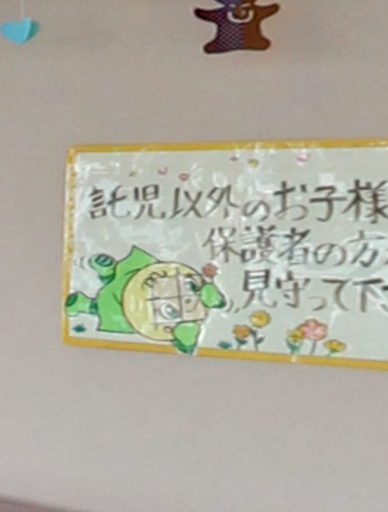 託児以外のお子様
保護者の方
見守って下